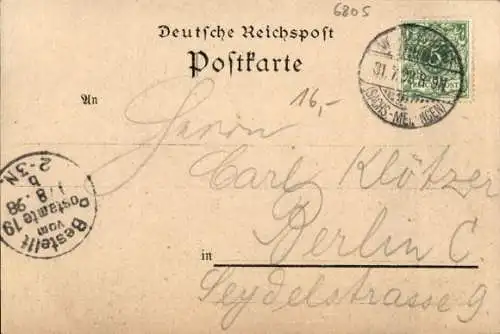 6805
Deutsche Reichspost
Postkarte
31. 7. 98. 8-9N
(SACHS.-MEININGEN)
16,-
An
Herrn
Carl Klötzer
in Berlin C.
Seydelstrasse 9.
Bestellt
vom
Postamte 19
1/8.98
2-3N